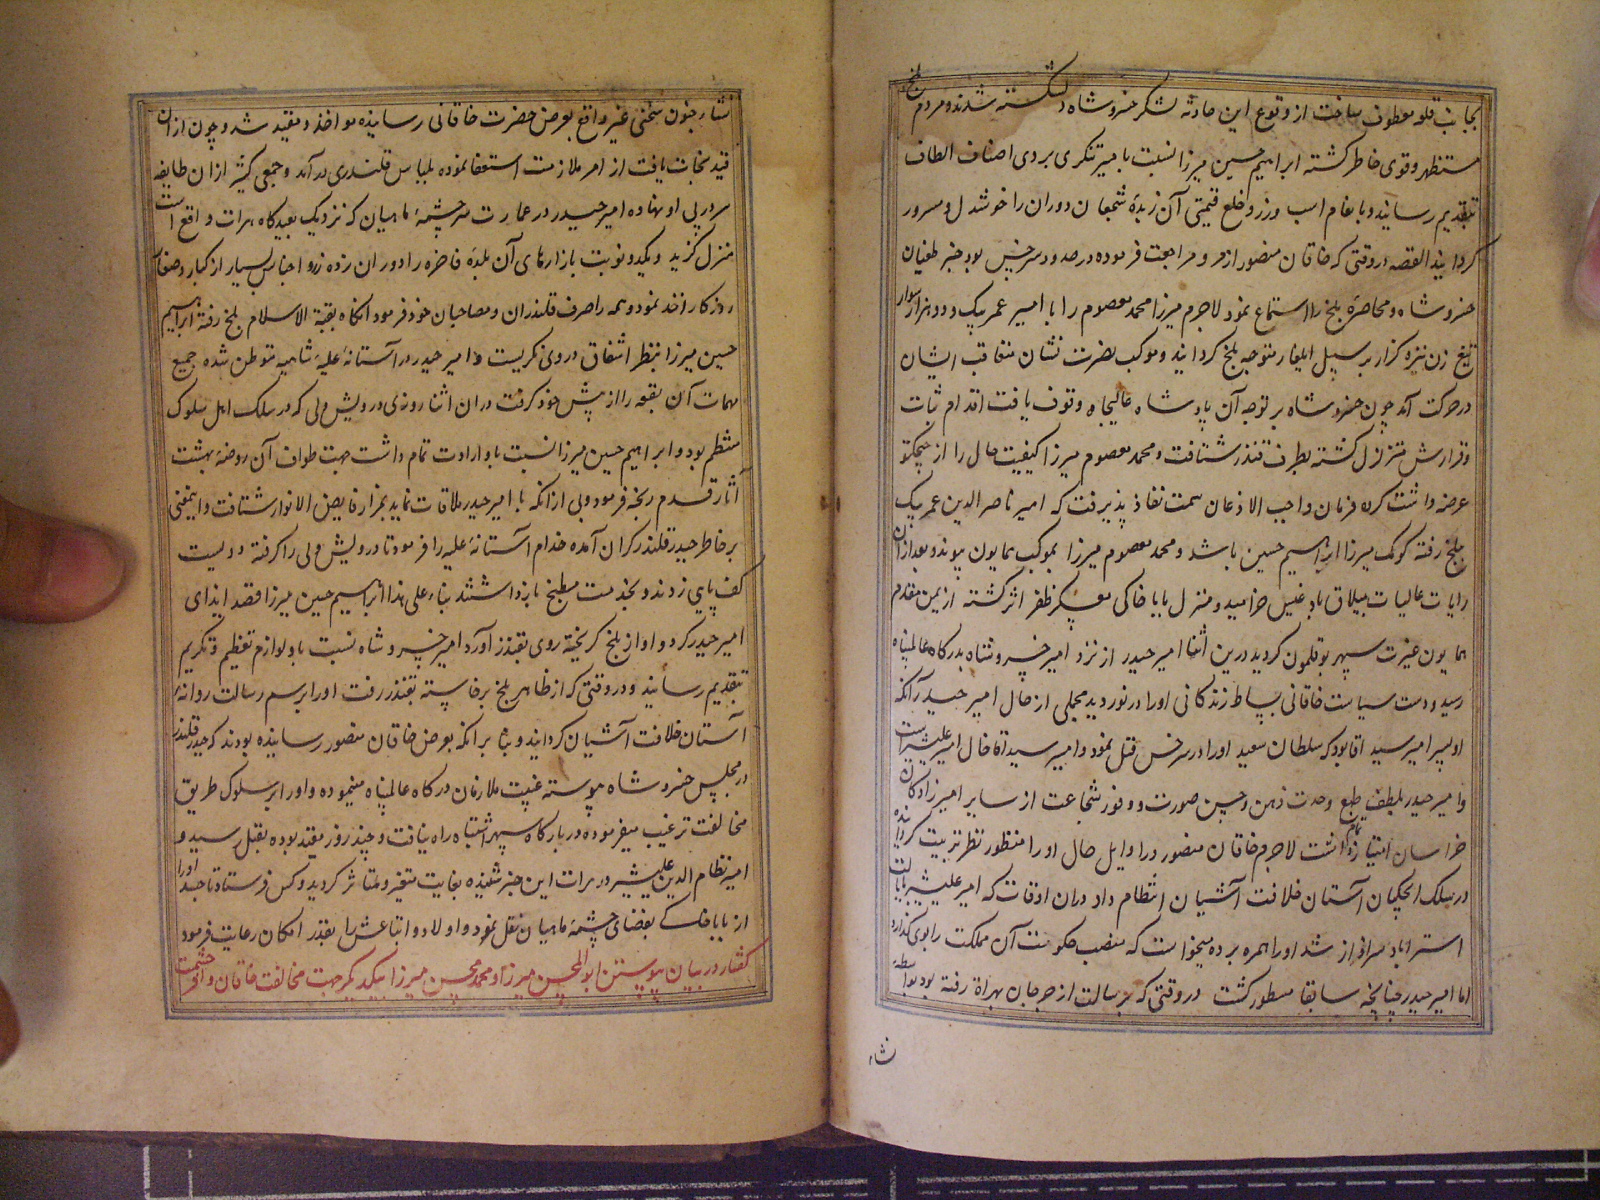 بجانب قلعه معطوف ساخت از وقوع این حادثه لشکر خسروشاه دلشکسته شدند و مردم بلخ
مستظهر و قوی خاطر کشته ابراهیم حسین میرزا نسبت بامیر تنکری بردی اصناف الطاف
بتقدیم رسانید و بانعام اسب و زر و خلع قیمتی آن زبدهٔ شجعان دوران را خوشدل و مسرور
کردانید القصه در وقتی که خاقان منصور از مرو مراجعت فرموده در حدود سرخس بود خبر طغیان
خسروشاه و محاصرهٔ بلخ را استماع نمود لاجرم میرزا محمد معصوم را با امیر عمر بیک و دو هزار سوار
تیغ زن نیزه کزار بر سبیل ایلغار متوجه بلخ کردانید و موکب نصرت نشان متعاقب ایشان
در حرکت آمد چون خسروشاه بر توجه آن پادشاه عالیجاه وقوف یافت اقدام ثبات
و قرارش متزلزل کشته بطرف قندز شتافت و محمد معصوم میرزا کیفیت حال را از چیچکتو
عرضه داشت کرده فرمان واجب الاذعان سمت نفاذ پذیرفت که امیر ناصر الدین عمر بیک
ببلخ رفته کومک میرزا ابراهیم حسین باشد و محمد معصوم میرزا بموکب همایون پیوندد و بعد از آن
رایات عالیات بییلاق بادغیس خرامید و منزل بابا خاکی معسکر ظفر اثر کشته از یمن مقدم
همایون غیرت سپهر بوقلمون کردید درین اثنا امیر حیدر از نزد امیر خسروشاه بدرکاه عالمپناه
رسید و دست سیاست خاقانی بساط زندکانی او را در نوردید مجملی از حال امیر حیدر آنکه
او پسر امیر سید اقا بود که سلطان سعید او را در سرخس قتل نمود و امیر سید اقا خال امیر علیشیر است
و امیر حیدر بلطف طبع وحدت ذهن و حسن صورت و وفور شجاعت از سایر امیرزادکان
خراسان امتیاز تمام داشت لاجرم خاقان منصور در اوایل حال او را منظور نظر تربیت کردانیده
در سلک ایچکیان آستان خلافت آشیان انتظام داد در ان اوقات که امیر علیشیر بایالت
استراباد سرافراز شد او را همراه برده میخواست که منصب حکومت آن مملکت را بوی کذارد
اما امیر حیدر چنانچه سابقا مسطور کشت در وقتی که برسالت از جرجان بهراة رفته بود بواسطه
نشاء
نشاء جنون سخنی غیر واقع بعرض حضرت خاقانی رسانیده مواخذ و مقید شد و چون از ان
قید نجات یافت از امر ملازمت استعفا نموده بلباس قلندری در آمد و جمعی کثیر از ان طایفه
سر در پی او نهاده امیر حیدر در عمارت سر چشمهٔ ماهیان که نزدیک بعیدکاه هرات واقع است
منزل کزید و یکدو نوبت بازارهای آن بلدهٔ فاخره را دوران زده زر و اجناس بسیار از کبار و صغار
روزکار اخذ نمود و همه را صرف قلندران و مصاحبان خود فرمود انکاه بقبة الاسلام بلخ رفته ابراهیم
حسین میرزا بنظر اشفاق در وی نکریست و امیر حیدر در آستانهٔ علیهٔ شاهیه متوطن شده جمیع
مهمات آن بقعه را از پیش خود کرفت در ان اثنا روزی درویش ولی که در سلک اهل سلوک
منتظم بود و ابراهیم حسین میرزا نسبت باو ارادت تمام داشت جهت طواف آن روضهٔ بهشت
آثار قدم رنجه فرمود و بی از انکه با امیر حیدر ملاقات نماید بمزار فایض الانوار شتافت و اینمعنی
بر خاطر حیدر قلندر کران آمده خدام آستانهٔ علیه را فرمود تا درویش ولی را کرفته دویست
کف پای زدند و بخدمت مطبخ بازداشتند بناء علی هذا ابراهیم حسین میرزا قصد ایذای
امیر حیدر کرد و او از بلخ کریخته روی بقندز آورد امیر خسروشاه نسبت باو لوازم تعظیم و تکریم
بتقدیم رسانید و در وقتی که از ظاهر بلخ برخاسته بقندز رفت او را برسم رسالت روانهٔ
آستان خلافت آشیان کردانید و بنا بر انکه بعرض خاقان منصور رسانیده بودند که حیدر قلندر
در مجلس خسروشاه پیوسته غیبت ملازمان درکاه عالمپناه مینموده و او را بر سلوک طریق
مخالفت ترغیب میفرموده در بارکاه سپهر اشتباه راه نیافت و چند روز مقید بوده بقتل رسید و
امیر نظام الدین علیشیر در هرات این خبر شنیده بغایت متغیر و متاثر کردید و کس فرستاد تا جسد او را
از بابا خاکی بفضای چشمهٔ ماهیان نقل نمود و اولاد و اتباعش را بقدر امکان رعایت فرمود
کفتار در بیان پیوستن ابوالمحسن میرزا و محمد محسن میرزا بیکدیکر جهت مخالفت خاقان وافر حشمت